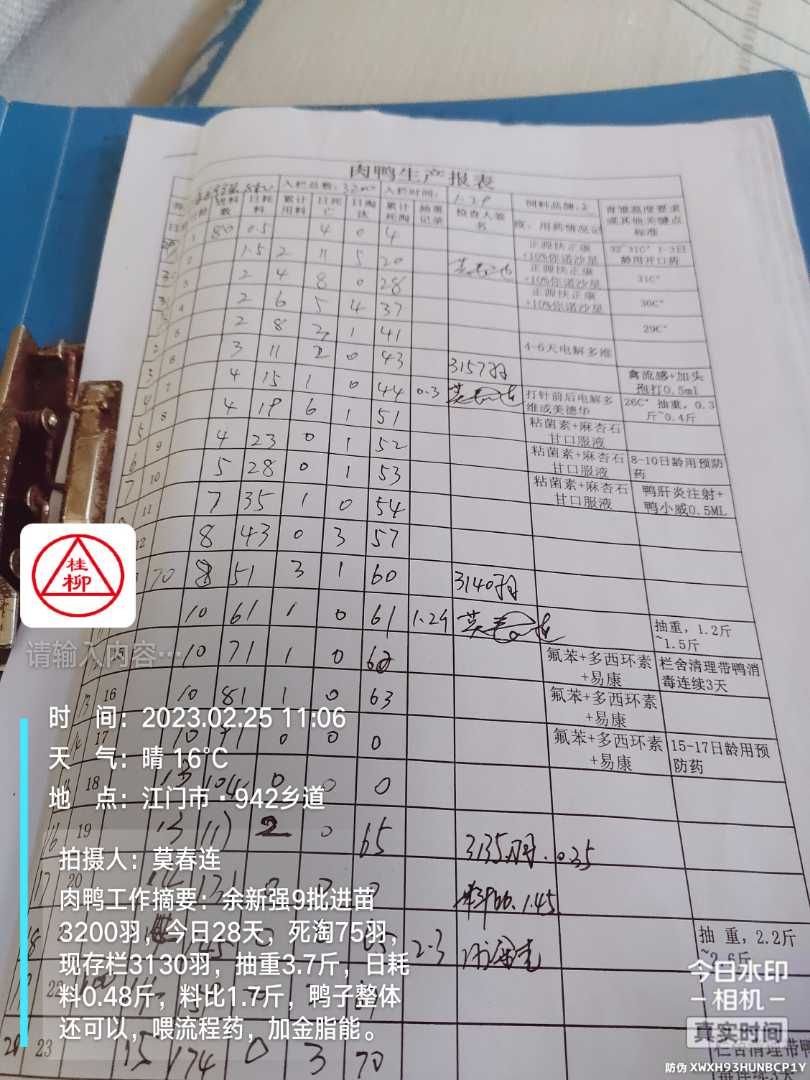 肉鸭生产报表
入栏总数：3200 入栏时间：1.29
日龄 日耗料 累计用料 日死亡 日淘汰 累计死淘 抽重记录 检查人签名 饲料品牌：2 育雏温度要求或其他关键点标准
1 80 0.5 4 0 4
1.5 2 11 5 20 正源扶正康+10%你诺沙星 32°31C° 1-3日龄用开口药
3 2 4 8 0 28 正源扶正康+10%你诺沙星 31C°
2 6 5 4 37 正源扶正康+10%你诺沙星 30C°
5 2 8 1 41 29C°
6 3 11 2 0 43 4-6天电解多维
7 4 15 1 0 44 0.3 3157羽 打针前后电解多维或美德华 禽流感+加头孢打0.5ml
26C° 抽重，0.3斤~0.4斤
8 4 19 6 1 51 粘菌素+麻杏石甘口服液
9 4 23 0 1 52 粘菌素+麻杏石甘口服液 8-10日龄用预防药
10 5 28 0 1 53 粘菌素+麻杏石甘口服液 鸭肝炎注射+鸭小威0.5ML
11 7 35 1 0 54
12 8 43 0 3 57
70 8 51 3 1 60 3140羽
10 61 1 0 61 1.29 抽重，1.2斤~1.5斤
10 71 1 0 62 氟苯+多西环素+易康 栏舍清理带鸭消毒连续3天
16 10 81 1 0 63 氟苯+多西环素+易康
17 10 91 0 0 0 氟苯+多西环素+易康 15-17日龄用预防药
18 104 0 0 0
19 13 117 2 0 65 3135羽.035
20 131 0 0 0 1.45
2.3 抽重，2.2斤~2.6斤
22
23 15 174 0 3 70 栏舍清理带鸭
桂柳
请输入内容…
时 间：2023.02.25 11:06
天 气：晴 16°C
地 点：江门市·942乡道
拍摄人：莫春连
肉鸭工作摘要：余新强9批进苗
3200羽，今日28天，死淘75羽，
现存栏3130羽，抽重3.7斤，日耗
料0.48斤，料比1.7斤，鸭子整体
还可以，喂流程药，加金脂能。
今日水印
相机
真实时间
防伪 XWXH93HUNBCP1Y